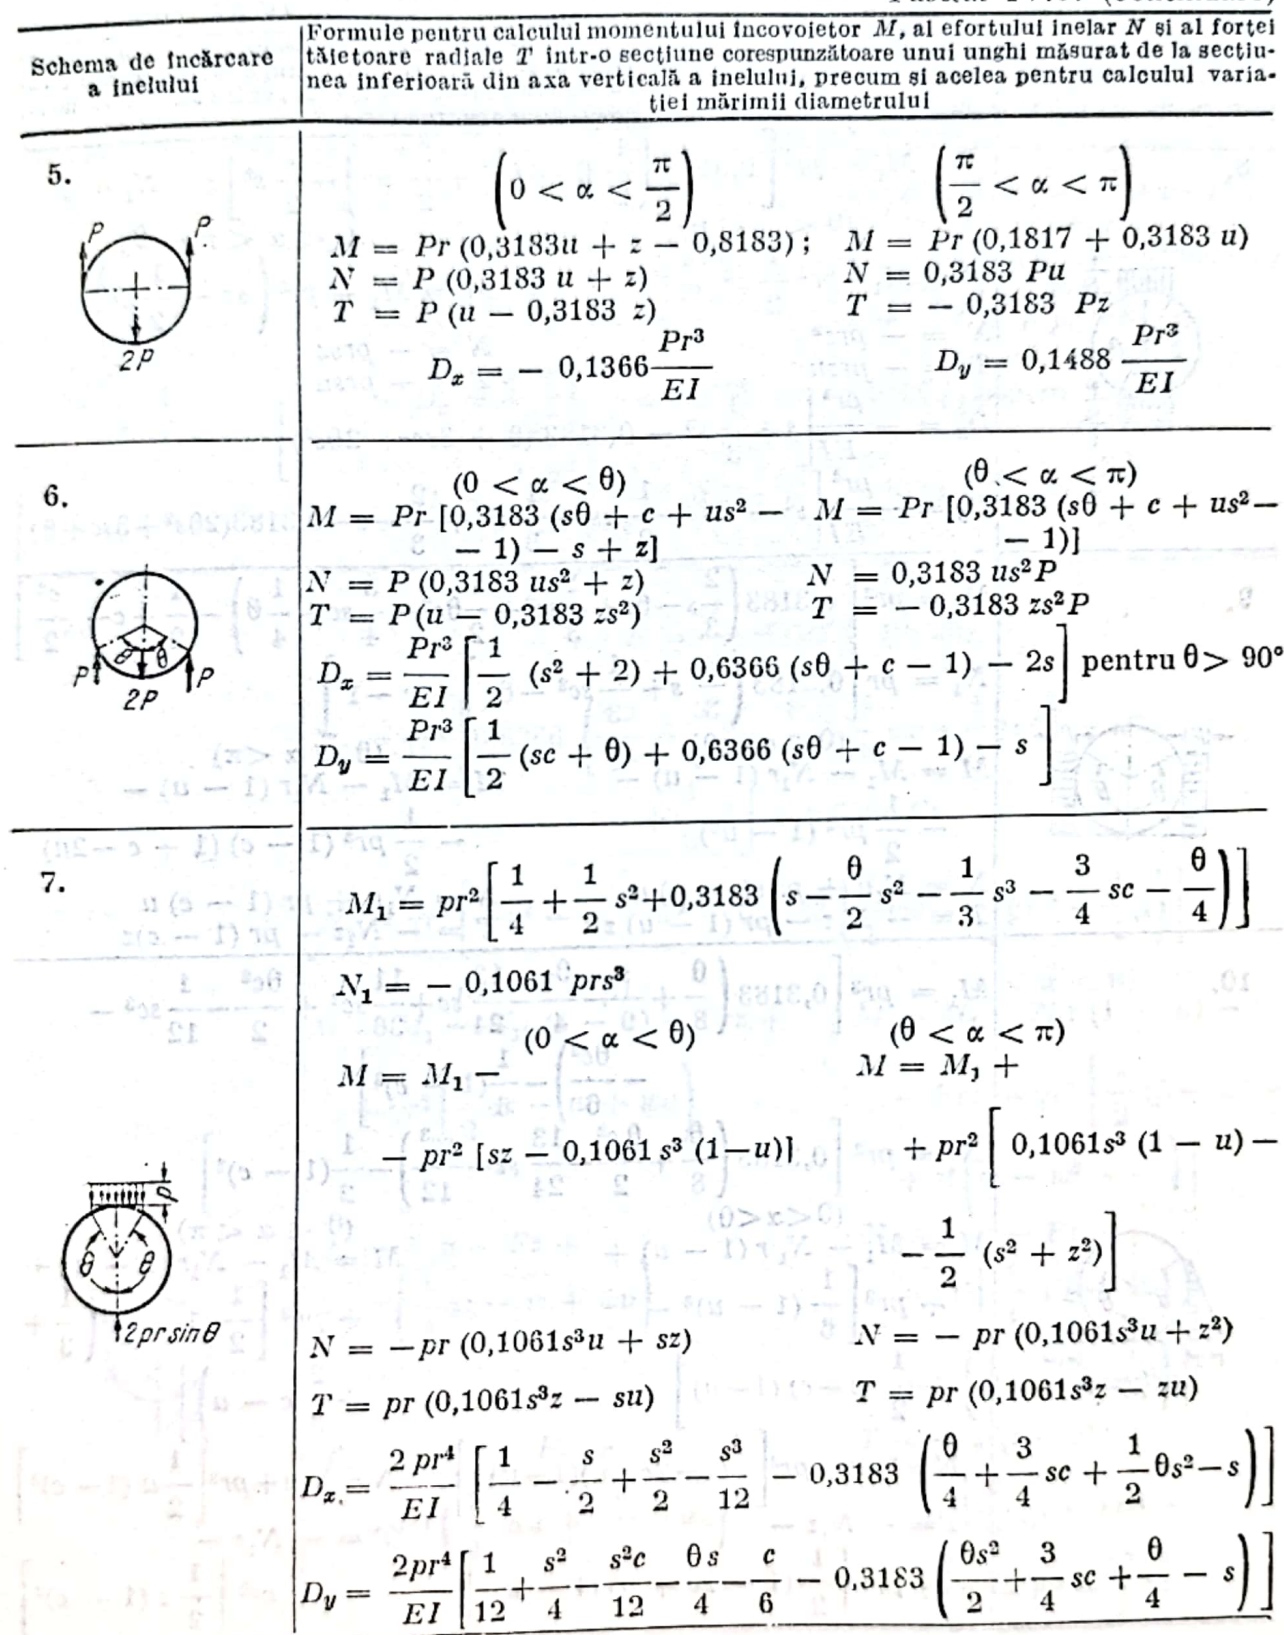 Schema de încărcare
a inelului
Formule pentru calculul momentului încovoietor M, al efortului inelar N și al forței
tăietoare radiale T într-o secțiune corespunzătoare unui unghi măsurat de la secțiu-
nea inferioară din axa verticală a inelului, precum și acelea pentru calculul varia-
ției mărimii diametrului
5.
P P
2P
(0 < α < π/2) (π/2 < α < π)
M = Pr (0,3183u + z − 0,8183); M = Pr (0,1817 + 0,3183 u)
N = P (0,3183 u + z) N = 0,3183 Pu
T = P (u − 0,3183 z) T = − 0,3183 Pz
D_x = − 0,1366 Pr³/EI D_y = 0,1488 Pr³/EI
6.
θ θ
P P
2P
(0 < α < θ) (θ < α < π)
M = Pr [0,3183 (sθ + c + us² − M = Pr [0,3183 (sθ + c + us² −
− 1) − s + z] − 1)]
N = P (0,3183 us² + z) N = 0,3183 us²P
T = P(u − 0,3183 zs²) T = − 0,3183 zs²P
D_x = Pr³/EI [1/2 (s² + 2) + 0,6366 (sθ + c − 1) − 2s] pentru θ > 90°
D_y = Pr³/EI [1/2 (sc + θ) + 0,6366 (sθ + c − 1) − s]
7.
p
θ θ
2pr sin θ
M₁ = pr² [1/4 + 1/2 s² + 0,3183 (s − θ/2 s² − 1/3 s³ − 3/4 sc − θ/4)]
N₁ = − 0,1061 prs³
(0 < α < θ) (θ < α < π)
M = M₁ − M = M₁ +
− pr² [sz − 0,1061 s³ (1−u)] + pr² [0,1061s³ (1 − u) −
− 1/2 (s² + z²)]
N = −pr (0,1061s³u + sz) N = − pr (0,1061s³u + z²)
T = pr (0,1061s³z − su) T = pr (0,1061s³z − zu)
D_x = 2 pr⁴/EI [1/4 − s/2 + s²/2 − s³/12 − 0,3183 (θ/4 + 3/4 sc + 1/2 θs² − s)]
D_y = 2pr⁴/EI [1/12 + s²/4 − s²c/12 − θs/4 − c/6 − 0,3183 (θs²/2 + 3/4 sc + θ/4 − s)]